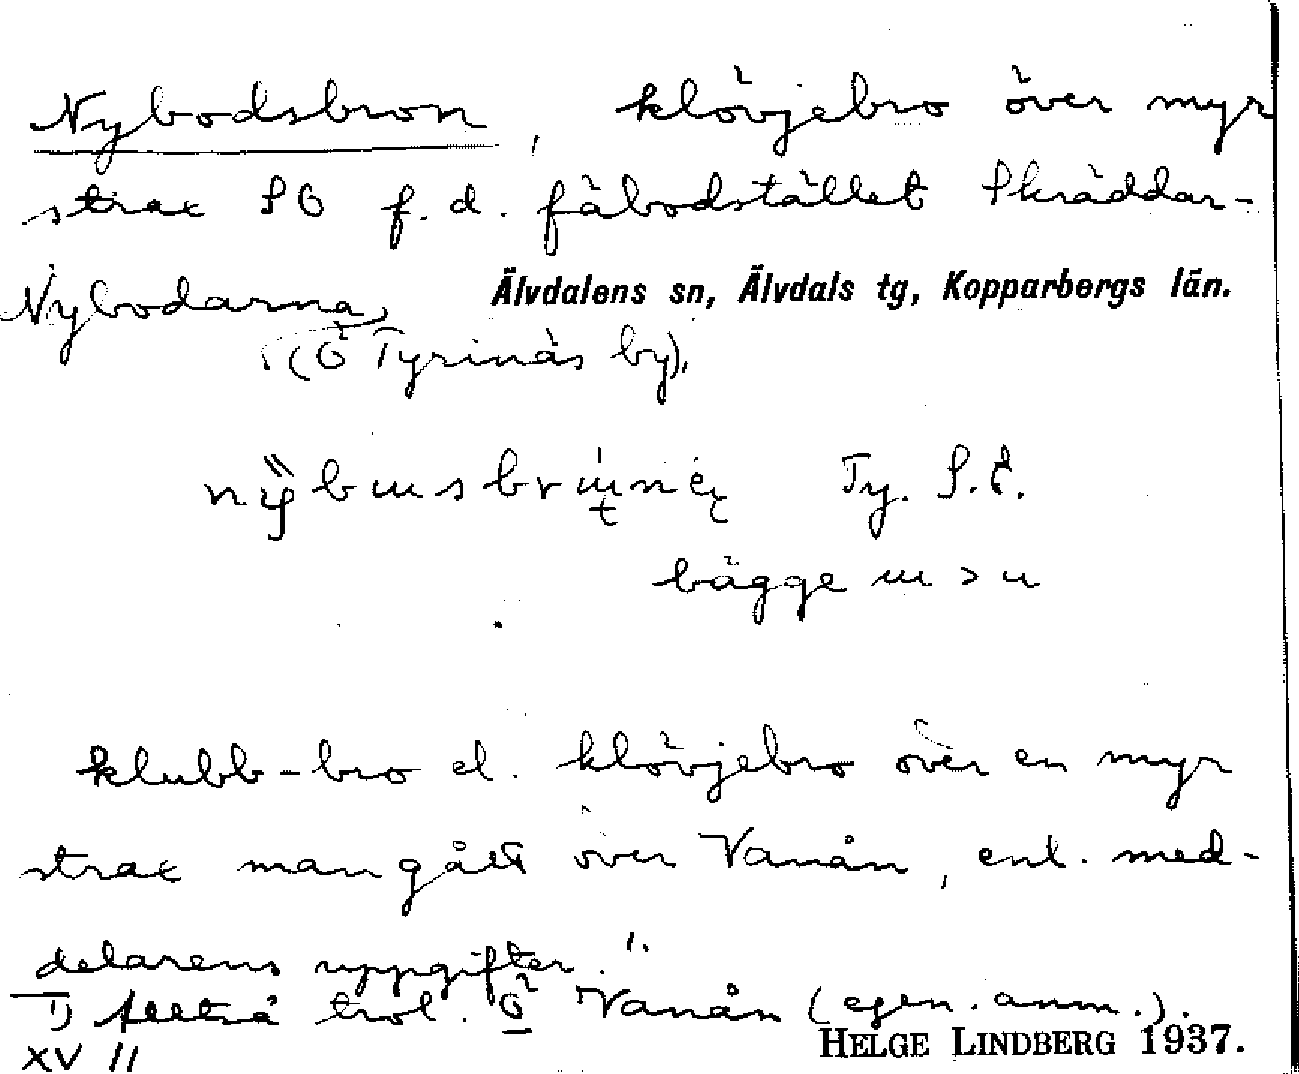 Nybodsbron, klövjebro över myr
strax SO f. d. fäbodstället Skräddar-
Nybodarna Älvdalens sn, Älvdals tg, Kopparbergs län.
(Ö Tyrinäs by).
Ty. S. E.
bägge ɯ > u
klubb-bro el. klövjebro över en myr
strax man gått över Vanån, enl. med-
delarens uppgifter. 1.
1) trol. Ö Vanån (egen. anm.).
XV 11 HELGE LINDBERG 1937.